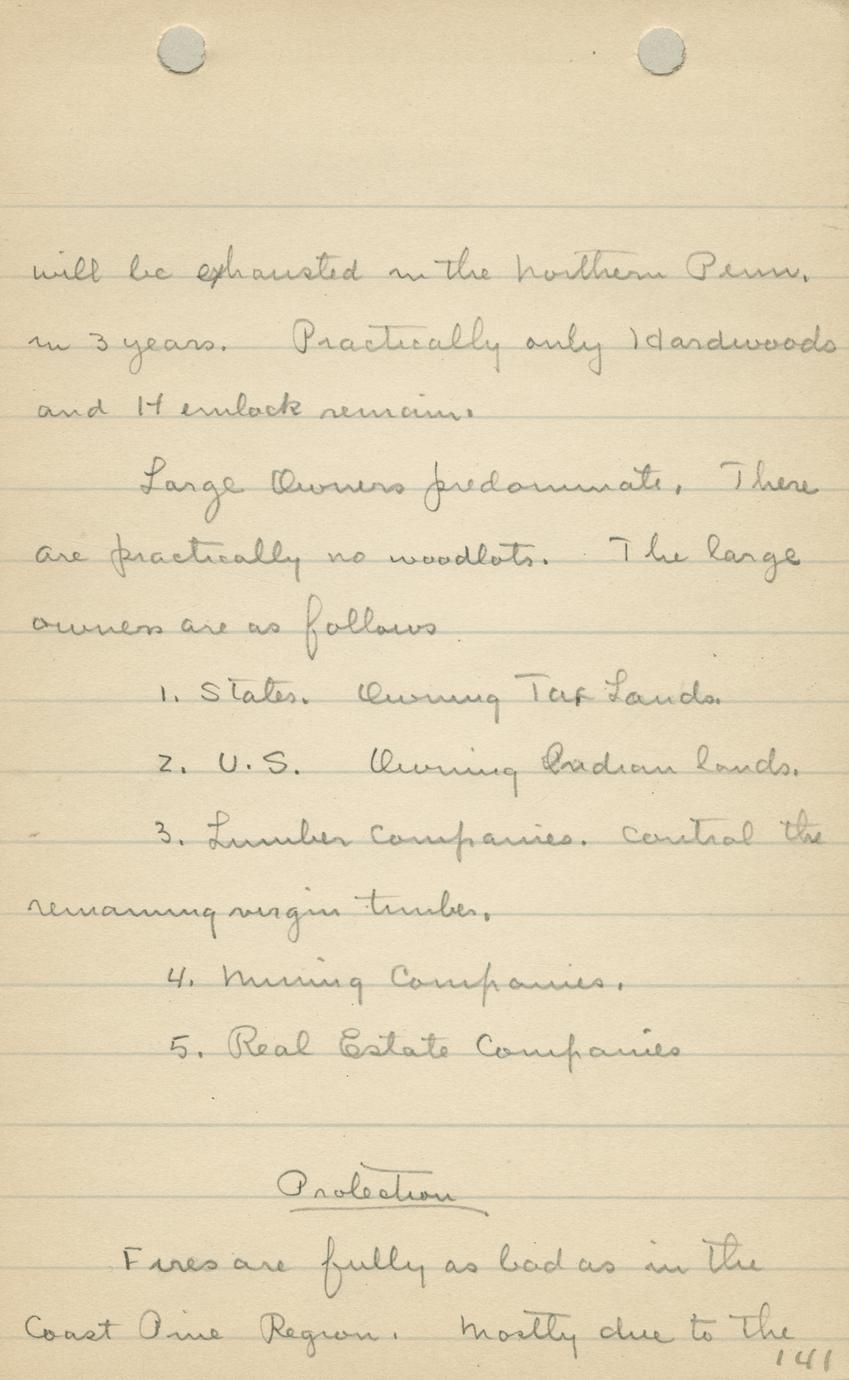 will be exhausted in the northern Penn.
in 3 years. Practically only Hardwoods
and Hemlock remain.
Large Owners predominate. There
are practically no woodlots. The large
owners are as follows
1. States. Owning Tax Lands.
2. U.S. Owning Indian lands.
3. Lumber Companies. Control the
remaining virgin timber.
4. Mining Companies.
5. Real Estate Companies
Protection
Fires are fully as bad as in the
Coast Pine Region. Mostly due to the
141